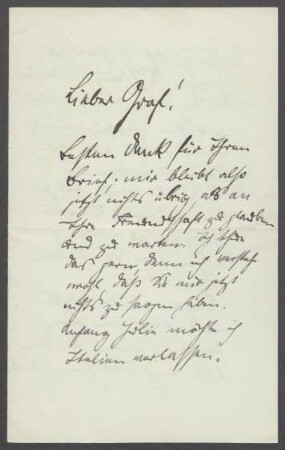 Lieber Graf!
besten Dank für Ihren
Brief. mir bleibt also
jetzt nichts übrig als an
Ihre Freundschaft zu glauben
und zu warten. Ich thue
das gern, denn ich verstehe
wohl, daß Sie mir jetzt
nichts zu sagen haben.
Anfang Juli möchte ich
Italien verlassen.